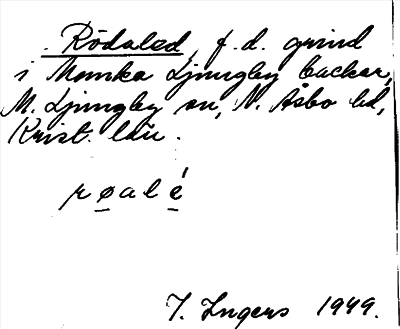 Rödaled, f.d. grind
i Munka Ljungby backar,
M. Ljungby sn, N. Åsbo hd,
Krist. län.
røalé
I. Ingers 1949.